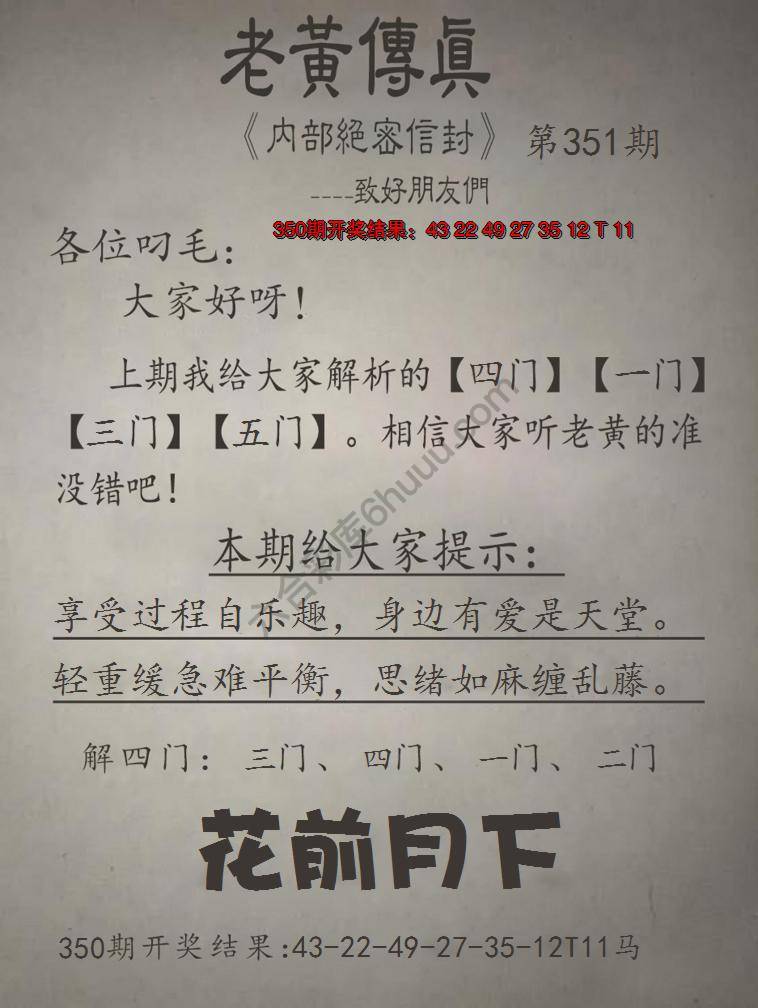 老黃傳眞
《内部絕密信封》 第351期
----致好朋友們
350期开奖结果：43 22 49 27 35 12 T 11
各位叼毛：
大家好呀！
上期我给大家解析的【四门】【一门】
【三门】【五门】。相信大家听老黄的准
没错吧！
本期给大家提示：
享受过程自乐趣，身边有爱是天堂。
轻重缓急难平衡，思绪如麻缠乱藤。
解四门：三门、四门、一门、二门
花前月下
350期开奖结果:43-22-49-27-35-12T11马
六合彩库6huuu.com